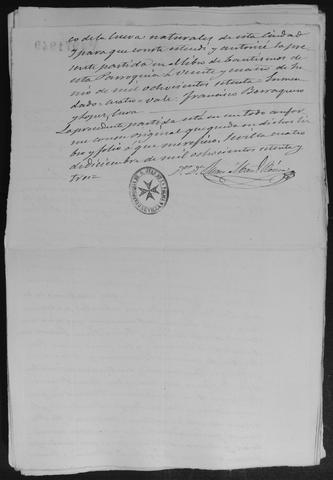 co de la Cueva naturales de esta Ciudad
Y para que conste estendí y autorice la pre
sente partida en el libro de bautismos de
esta Parroquia a Veinte y nueve de Ju
nio de mil ochocientos setenta = Enmen
dado = cuatro = vale = Francisco Barraguero
y Lopez, Cura
La precedente partida está en un todo confor
me con su original que queda en dicho li
bro y folio a que me refiero. Sevilla cuatro
de diciembre de mil ochocientos setenta y
tres =